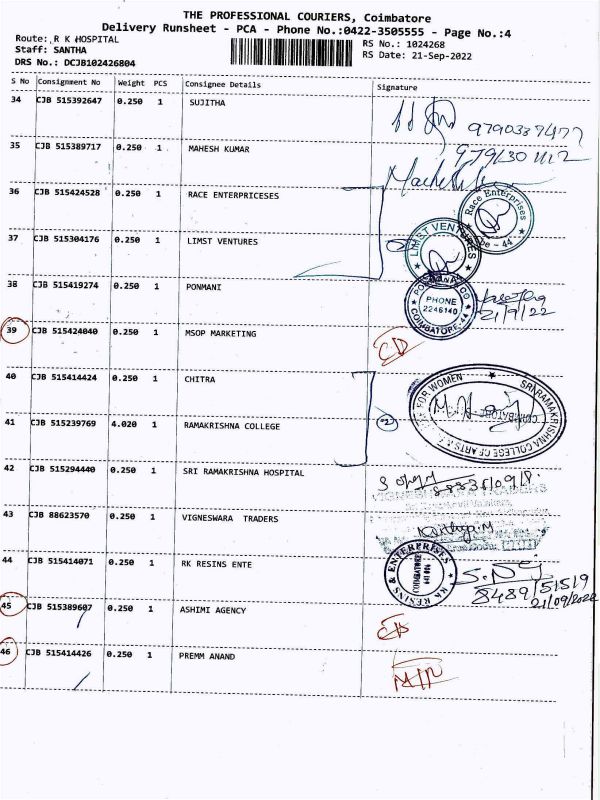 THE PROFESSIONAL COURIERS, Coimbatore
Delivery Runsheet - PCA - Phone No.:0422-3505555 - Page No.:4
Route: R K HOSPITAL
Staff: SANTHA
DRS No.: DCJB102426804
RS No.: 1024268
RS Date: 21-Sep-2022
S No Consignment No Weight PCS Consignee Details Signature
34 CJB 515392647 0.250 1 SUJITHA
35 CJB 515389717 0.250 1 MAHESH KUMAR
36 CJB 515424528 0.250 1 RACE ENTERPRICESES
Race Enterprises
37 CJB 515304176 0.250 1 LIMST VENTURES
LIMST VENTURES
38 CJB 515419274 0.250 1 PONMANI
PHONE
2246140
COIMBATORE-44
21/9/22
39 CJB 515424040 0.250 1 MSOP MARKETING
CD
40 CJB 515414424 0.250 1 CHITRA
41 CJB 515239769 4.020 1 RAMAKRISHNA COLLEGE
2
SRI RAMAKRISHNA COLLEGE OF ARTS &
FOR WOMEN
COIMBATORE
42 CJB 515294440 0.250 1 SRI RAMAKRISHNA HOSPITAL
43 CJB 88623570 0.250 1 VIGNESWARA TRADERS
44 CJB 515414071 0.250 1 RK RESINS ENTE
RK RESINS & ENTERPRISES
COIMBATORE
641 006
8489151519
21/09/2022
45 CJB 515389607 0.250 1 ASHIMI AGENCY
46 CJB 515414426 0.250 1 PREMM ANAND